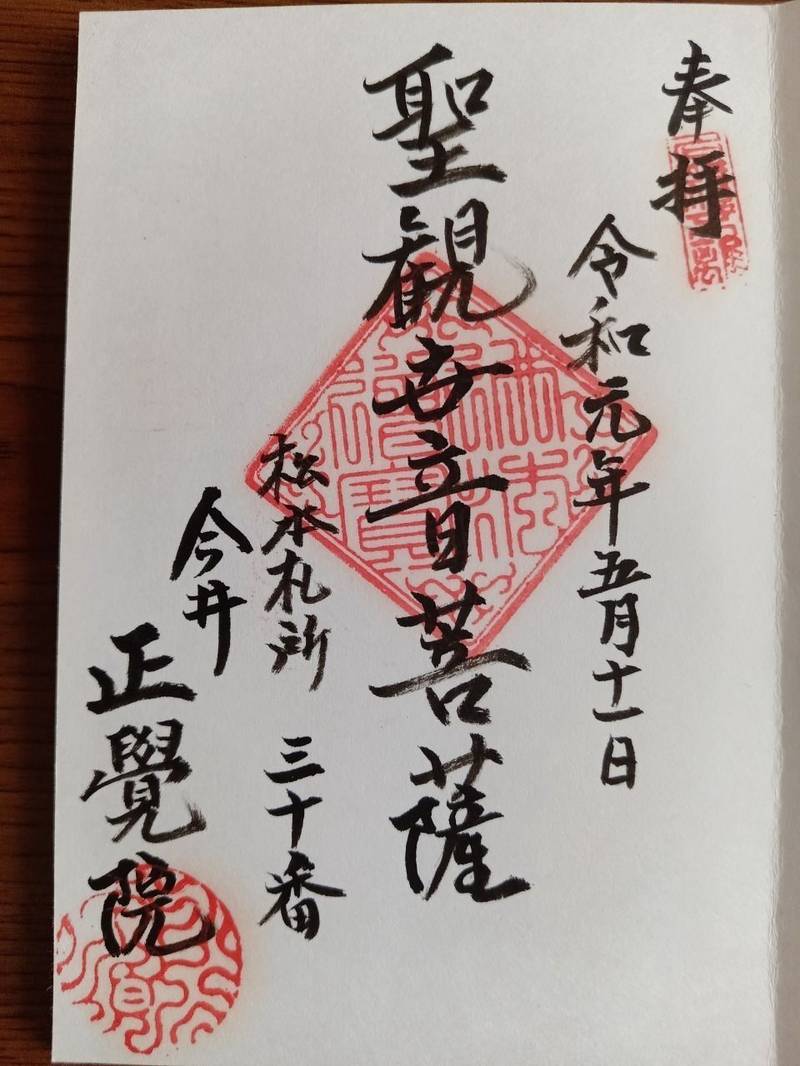 奉拝
令和元年五月十一日
聖観世音菩薩
松本札所 三十番
今井
正覺院